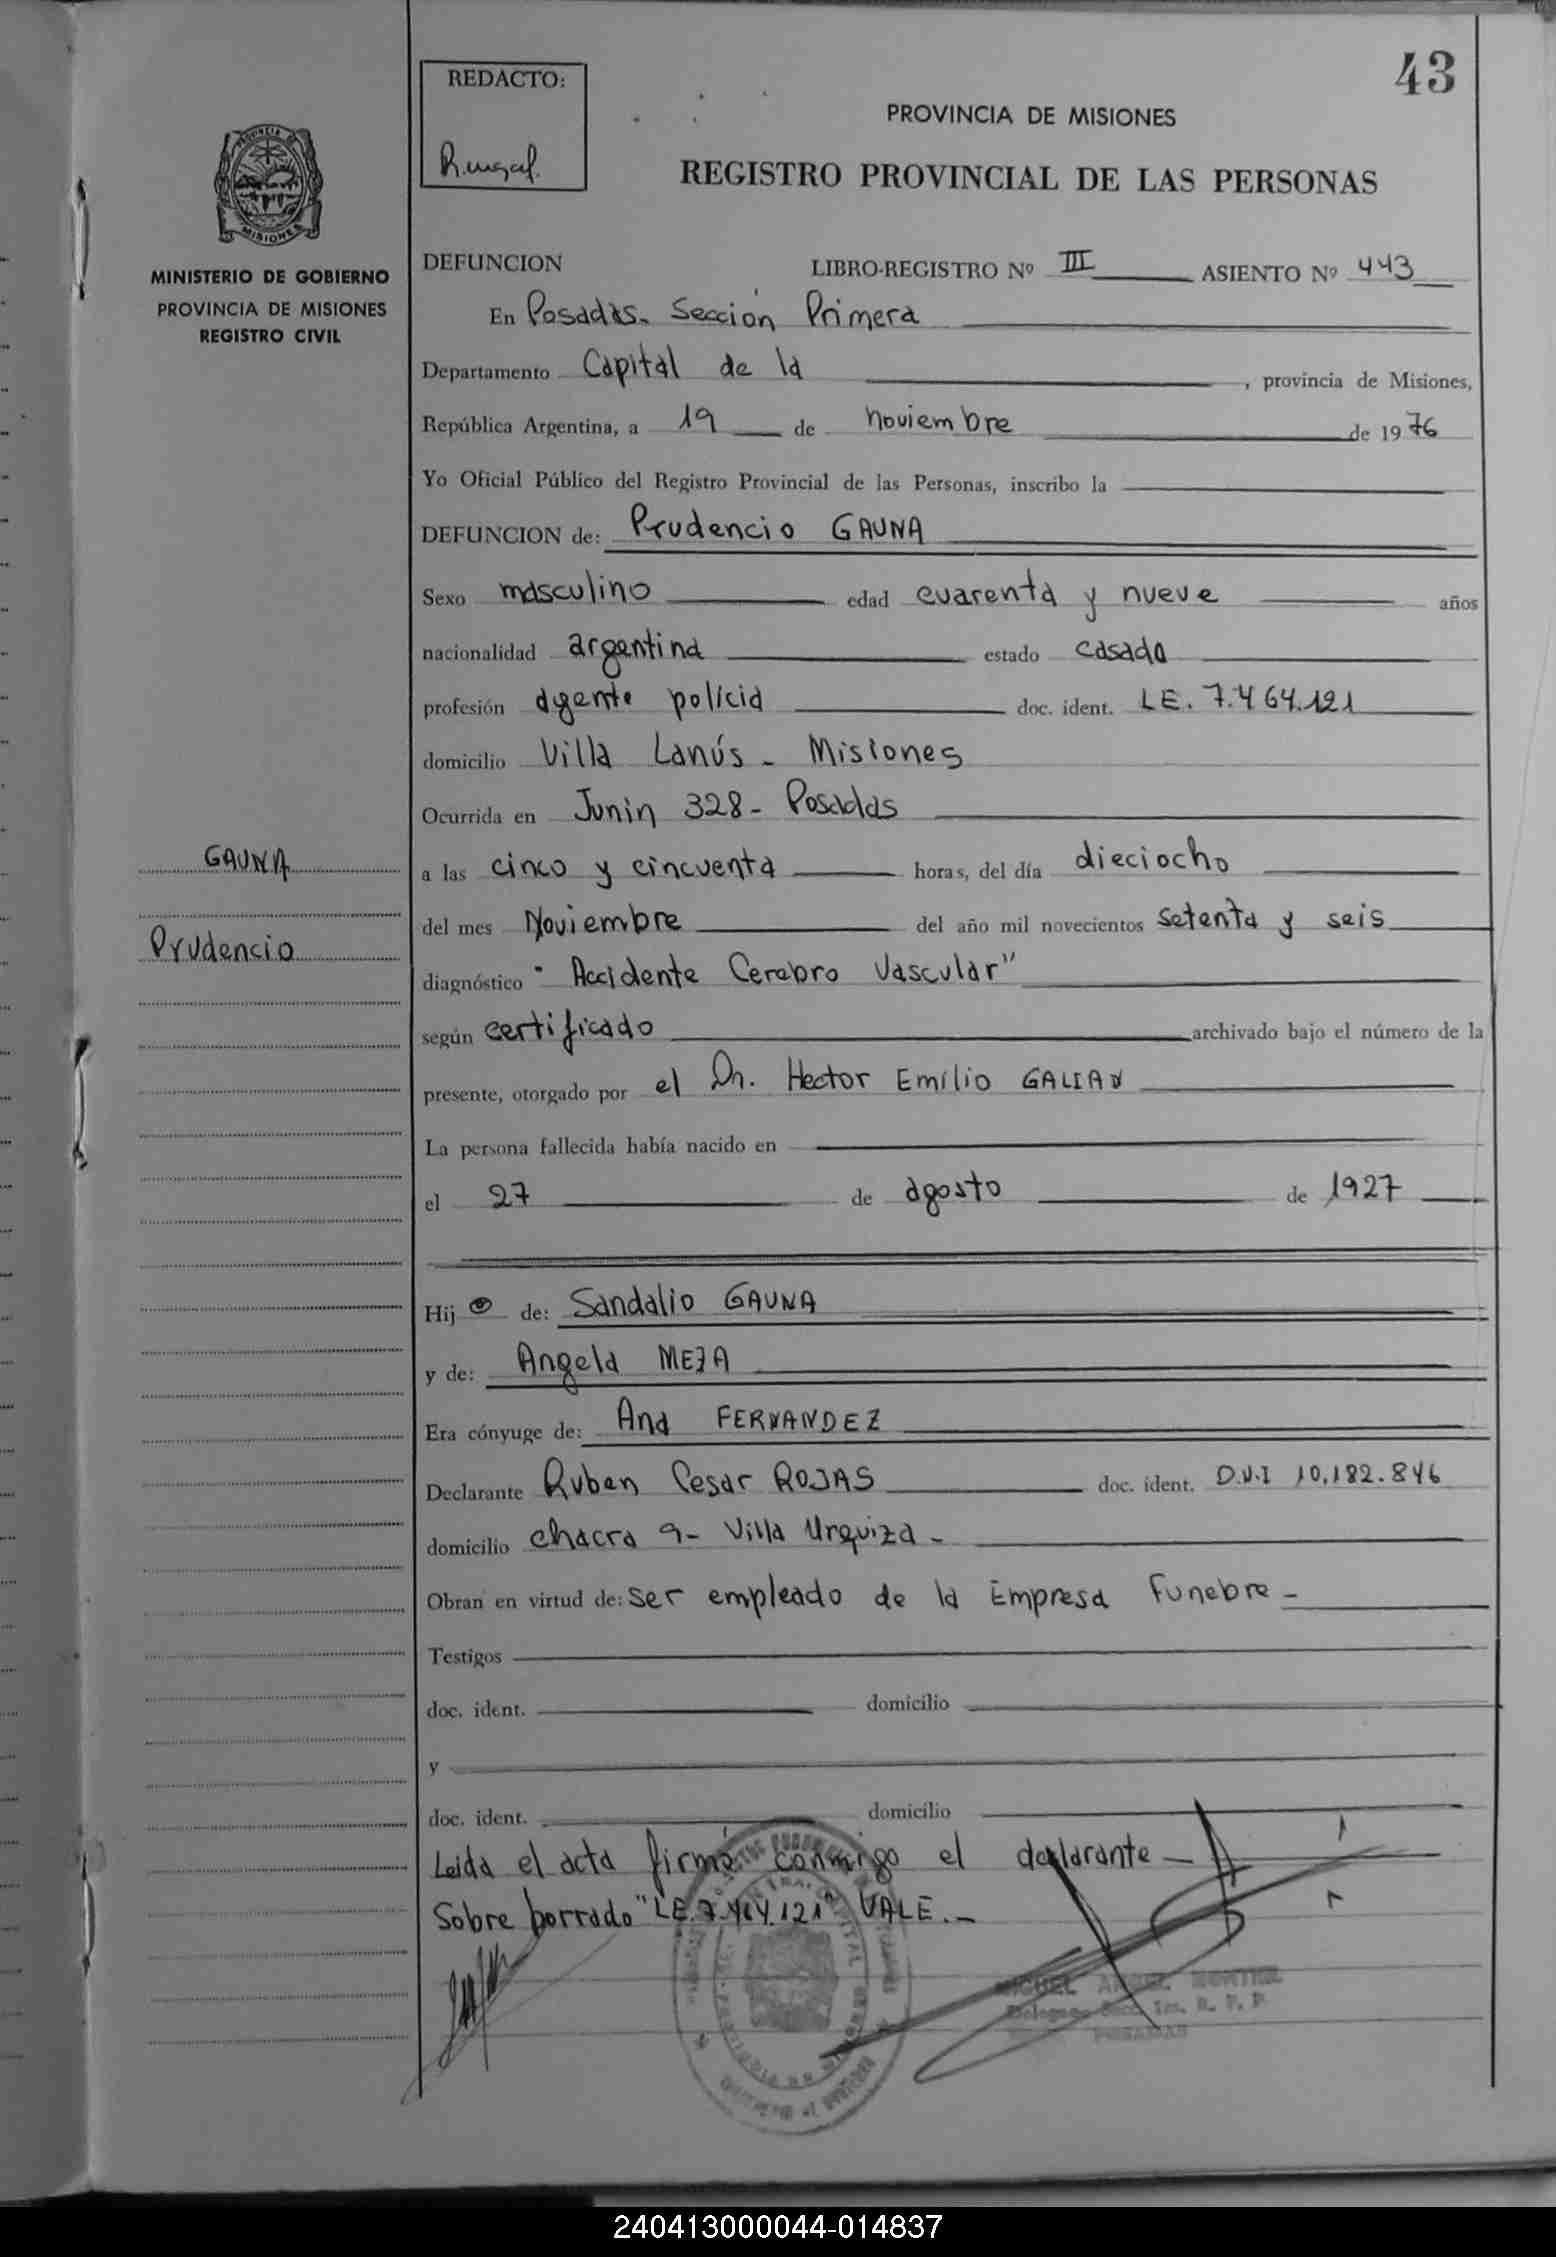 43
REDACTO:
PROVINCIA DE MISIONES
REGISTRO PROVINCIAL DE LAS PERSONAS
PROVINCIA DE
MISIONES
MINISTERIO DE GOBIERNO
PROVINCIA DE MISIONES
REGISTRO CIVIL
DEFUNCION LIBRO-REGISTRO Nº III ASIENTO Nº 443
En Posadas. Sección Primera
Departamento Capital de la , provincia de Misiones,
República Argentina, a 19 de noviembre de 1976
Yo Oficial Público del Registro Provincial de las Personas, inscribo la
DEFUNCION de: Prudencio GAUNA
Sexo masculino edad cuarenta y nueve años
nacionalidad argentina estado casado
profesión agente policia doc. ident. LE. 7.464.121
domicilio Villa Lanús - Misiones
Ocurrida en Junin 328 - Posadas
GAUNA
Prudencio
a las cinco y cincuenta horas, del día dieciocho
del mes Noviembre del año mil novecientos setenta y seis
diagnóstico " Accidente Cerebro Vascular"
según certificado archivado bajo el número de la
presente, otorgado por el Dr. Hector Emilio GALIAN
La persona fallecida había nacido en
el 27 de agosto de 1927
Hijo de: Sandalio GAUNA
y de: Angela MEZA
Era cónyuge de: Ana FERNANDEZ
Declarante Ruben Cesar ROJAS doc. ident. D.N.I 10.182.846
domicilio chacra 9- Villa Urquiza -
Obran en virtud de: ser empleado de la Empresa Funebre -
Testigos
doc. ident. domicilio
y
doc. ident. domicilio
Leida el acta firma conmigo el declarante -
Sobre borrado "LE.7.464.121" VALE. -
MIGUEL ANGEL
POSADAS
240413000044-014837